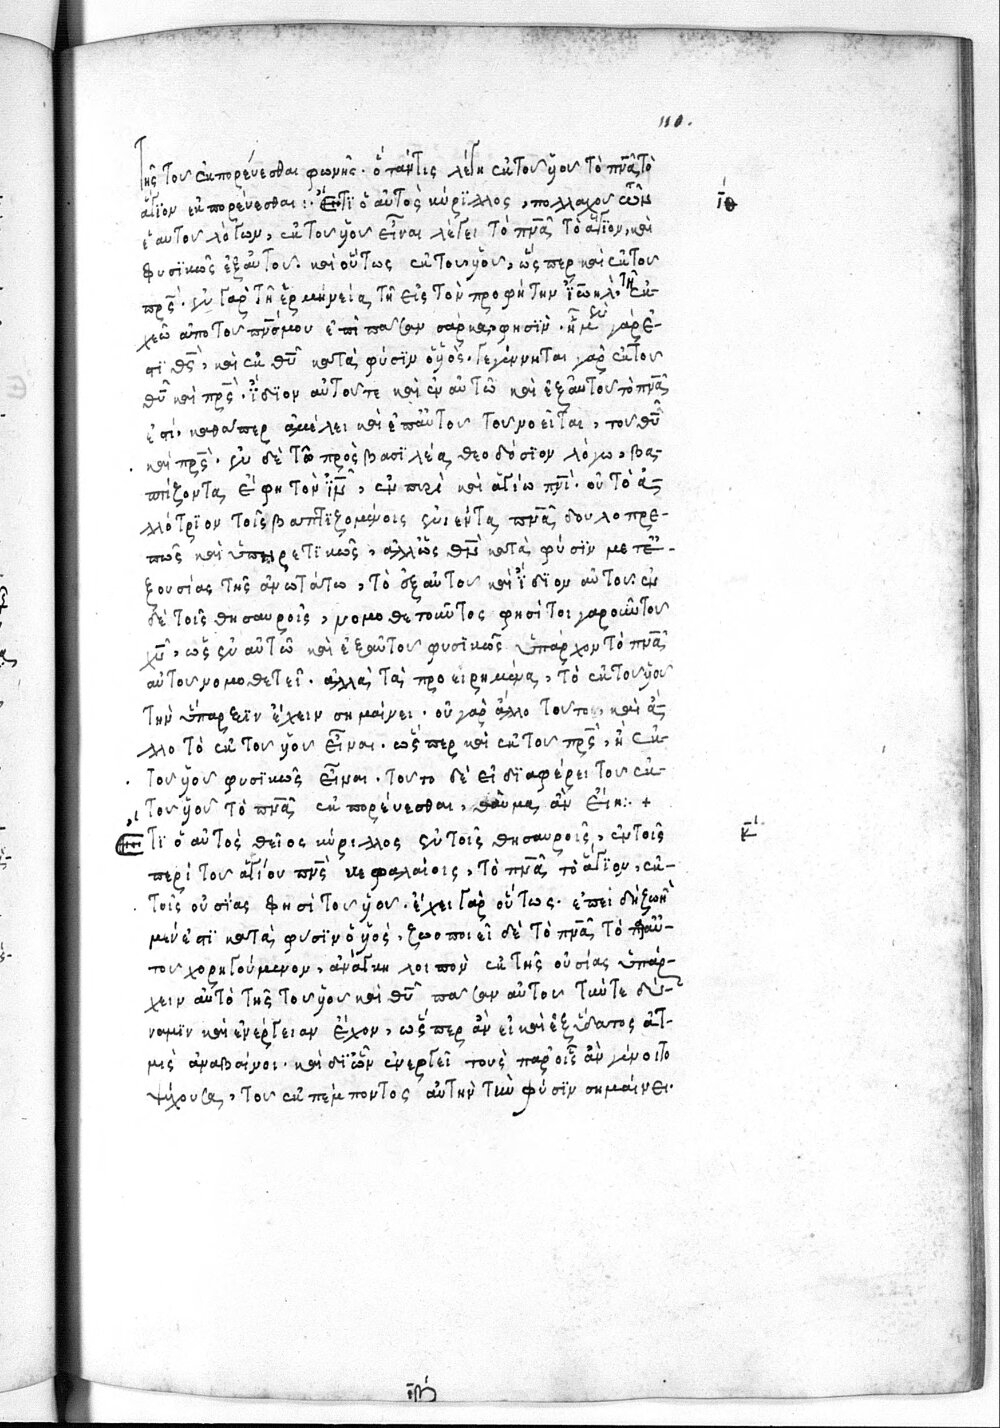 110.
τῆς τοῦ ἐκπορεύεσθαι φωνῆς. ὃ πάντες λέγει ἐκ τοῦ υἱοῦ τὸ πνᾶ τὸ
ἅγϊον ἐκπορεύεσθαι:· Ἔτϊ ὁ αὐτὸς κύρϊλλος, πολλαχοῦ τῶν
ϊθ
ἑαυτοῦ λόγων, ἐκ τοῦ υἱοῦ εἶναι λέγει τὸ πνᾶ τὸ ἅγϊον, καὶ
φυσϊκῶς ἐξ αὐτοῦ. καὶ οὕτως ἐκ τοῦ υἱοῦ, ὥσπερ καὶ ἐκ τοῦ
πρς. ἐν γὰρ τῆ ἑρμηνεία τῆ εἰς τὸν προφήτην ϊωὴλ, τῆ ἐκ-
χεῶ ἀπὸ τοῦ πνς μου ἐπὶ πᾶσαν σάρκα, φησὶν. ἧ μὲν γάρ ἐ-
σϊ θς, καὶ ἐκ θυ κατὰ φύσϊν ὁ υἱός. γεγέννηται γὰρ ἐκ τοῦ
θυ καὶ πρς. ἴδϊον αὐτοῦ τε καὶ ἐν αὐτῶ καὶ ἐξ αὐτοῦ τὸ πνᾶ
ἐσί, καθάπερ ἀμέλει καὶ ἐπ' αὐτοῦ τοῦ νοεῖται, τοῦ θυ
καὶ πρς. ἐν δὲ τῶ πρὸς βασϊλέα θεοδόσϊον λόγω, βα-
πτίζοντα ἔφη τὸν ϊν, ἐν πυρὶ καὶ ἁγίω πνι. οὐ τὸ ἀλ-
λότρϊον τοῖς βαπτϊζομένοις ἐνιέντα πνᾶ δουλοπρε-
πῶς καὶ ὑπηρετϊκῶς, ἀλλ' ὡς θν κατὰ φύσϊν μετ' ἐ-
ξουσίας τῆς ἀνωτάτω, τὸ ἐξ αὐτοῦ καὶ ἴδϊον αὐτοῦ. ἐν
δὲ τοῖς θησαυροῖς, νομοθετοῦντος φησί τοιγαροῦν τοῦ
χυ, ὡς ἐν αὐτῶ καὶ ἐξ αὐτοῦ φυσϊκῶς ὑπάρχον τὸ πνᾶ
αὐτοῦ νομοθετεῖ. ἀλλὰ τὰ προειρημένα, τὸ ἐκ τοῦ υἱοῦ
τὴν ὕπαρξϊν ἔχειν σημαίνει. οὐ γὰρ ἄλλο τοῦτο, καὶ ἄλ-
λο τὸ ἐκ τοῦ υἱοῦ εἶναι. ὥσπερ καὶ ἐκ τοῦ πρς, ἢ ἐκ
τοῦ υἱοῦ φυσϊκῶς εἶναι. τοῦτο δὲ εἰ δϊαφέρει τοῦ ἐκ
τοῦ υἱοῦ τὸ πνᾶ ἐκπορεύεσθαι, θαῦμα ἂν εἴη:· +
Ἔτϊ ὁ αὐτὸς θεῖος κύριλλος ἐν τοῖς θησαυροῖς, ἐν τοῖς
κ
περὶ τοῦ ἁγίου πνς κεφαλαίοις, τὸ πνᾶ τὸ ἅγϊον, ἐκ
τῆς οὐσίας φησὶ τοῦ υἱοῦ. ἔχει γὰρ οὕτως. ἐπεὶ δὴ ζωὴ
μέν ἐσϊ κατὰ φύσϊν ὁ υἱός, ζωοποιεῖ δὲ τὸ πνᾶ τὸ παρ' αὐ-
τοῦ χορηγούμενον, ἀνάγκη λοιπὸν ἐκ τῆς οὐσίας ὑπάρ-
χειν αὐτὸ τῆς τοῦ υἱοῦ καὶ θυ πᾶσαν αὐτοῦ τήν τε δύ-
ναμϊν καὶ ἐνέργειαν ἔχον, ὥσπερ ἂν εἰ καὶ ἐξ ὕδατος ἀτ-
μὶς ἀναβαίνοι. καὶ δϊ' ὧν ἐνεργεῖ τοὺς παρ' οἷς ἂν γένοιτο
ψύχουσα, τοῦ ἐκπέμποντος αὐτὴν τὴν φύσϊν σημαίνει.
ιβ